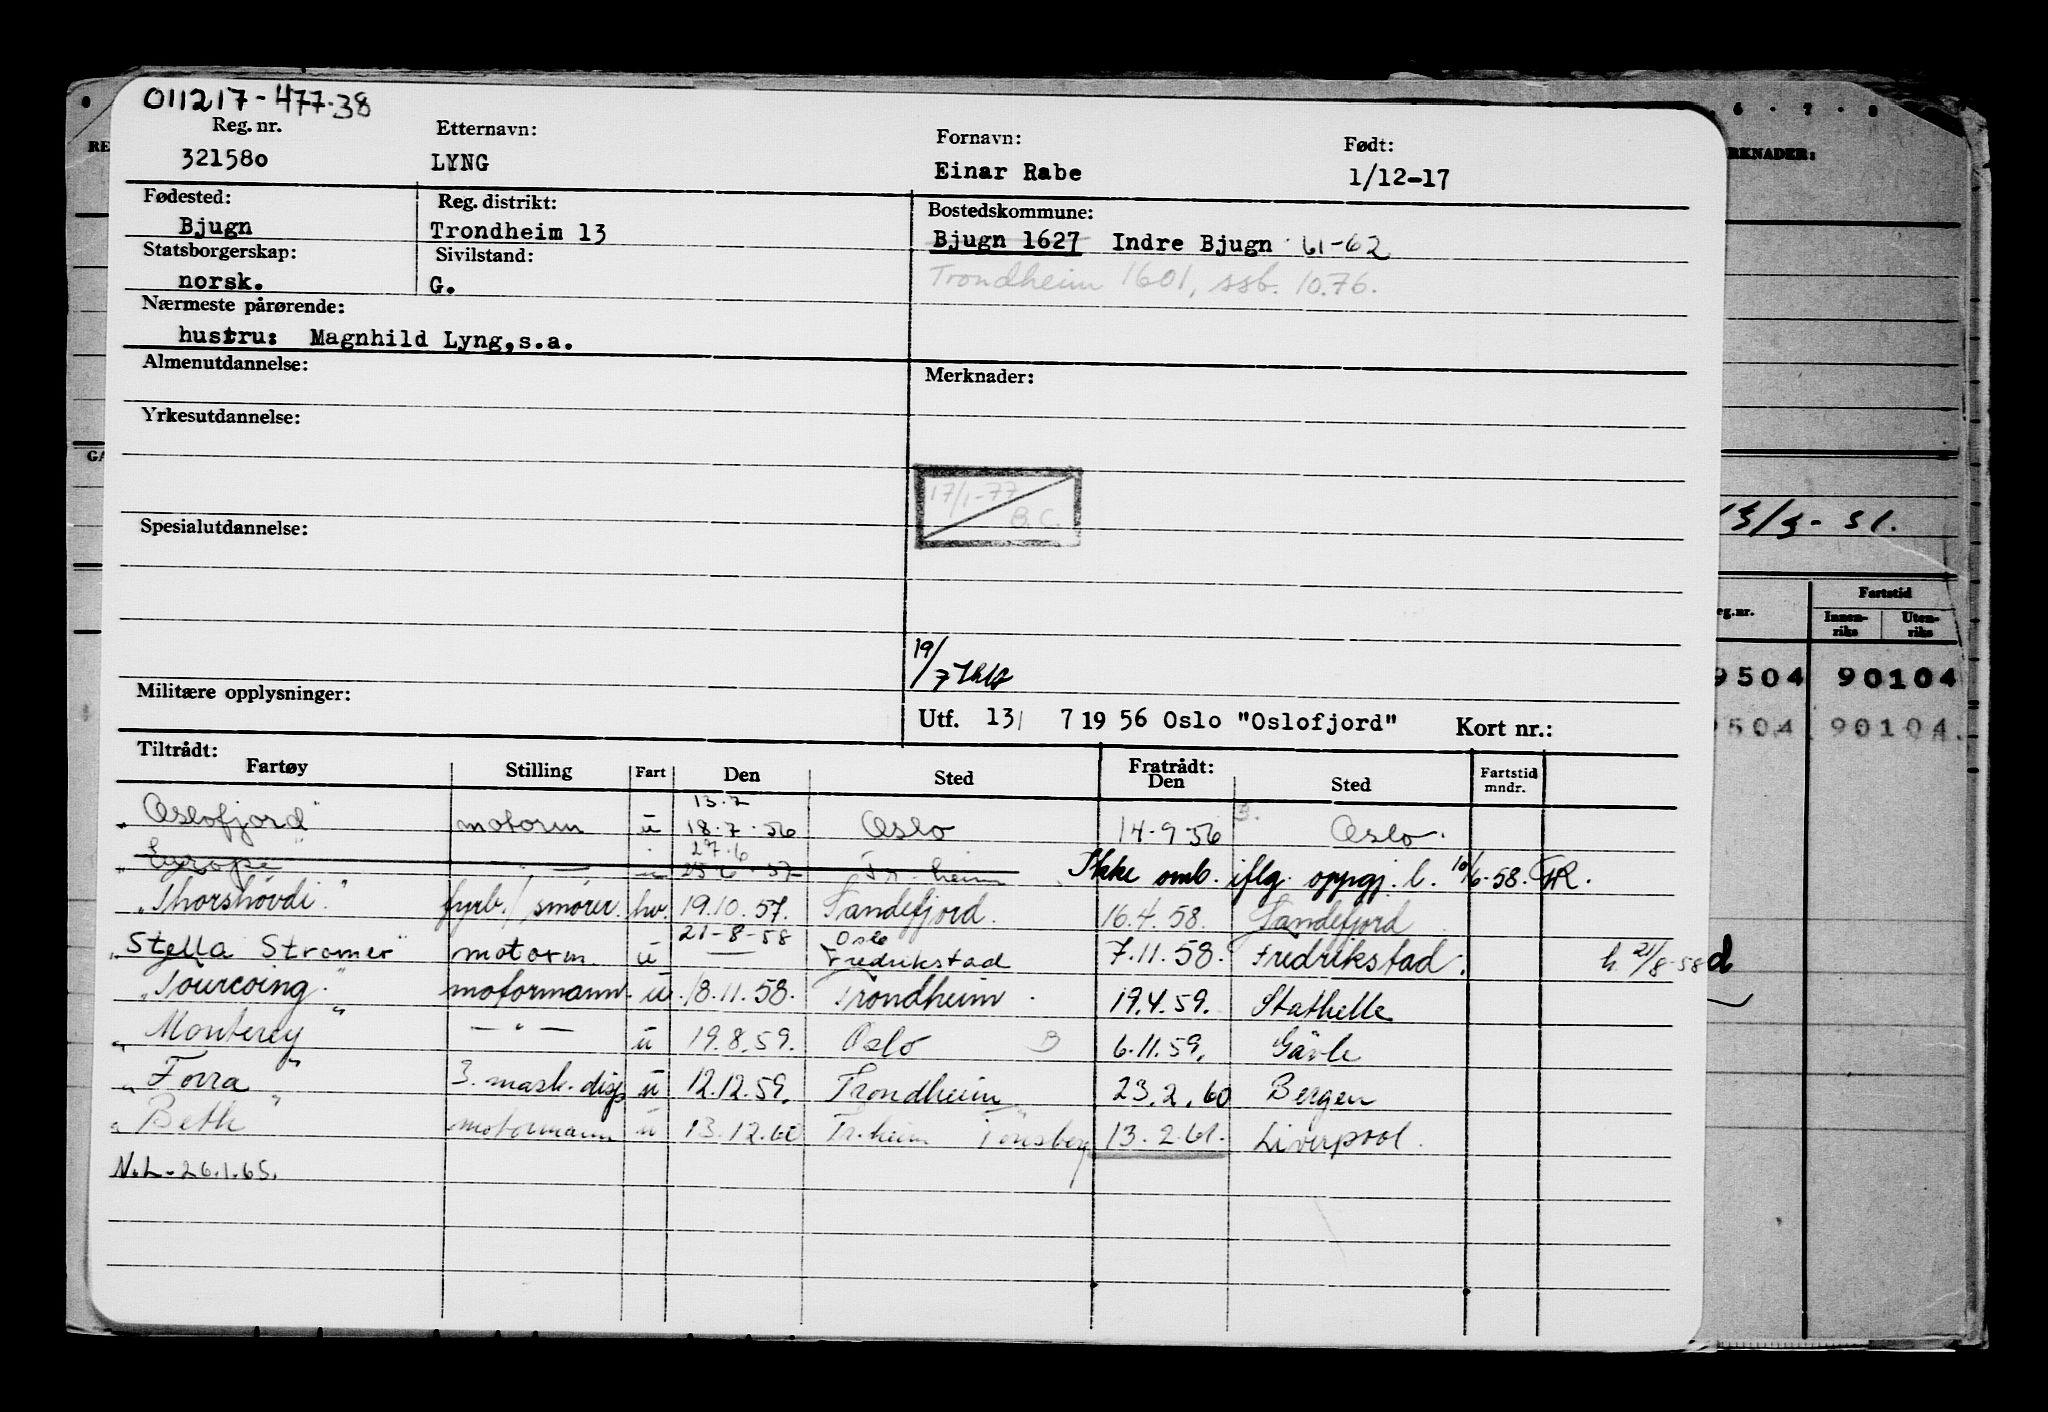 011217-477.38
Reg. nr. Etternavn: Fornavn: Født:
321580 LYNG Einar Rabe 1/12-17
Fødested: Reg. distrikt: Bostedskommune:
Bjugn Trondheim 13 Bjugn 1627 Indre Bjugn 61-62
Statsborgerskap: Sivilstand: Trondheim 1601, ssb. 10.76.
norsk. G.
Nærmeste pårørende:
hustru: Magnhild Lyng,s.a.
Almenutdannelse: Merknader:
Yrkesutdannelse:
17/1-77
B.C.
Spesialutdannelse:
19/7
Militære opplysninger:
Utf. 13/ 7 19 56 Oslo "Oslofjord" Kort nr.:
Tiltrådt: Fratrådt:
Fartøy Stilling Fart Den Sted Den Sted Fartstid mndr.
13.7
"Oslofjord" motorm u 18.7.56 Oslo 14-9-56 Oslo.
27.6
"Europe" — " — u 25.6.57 Tr.heim Ikke omb. iflg. oppgj. l. 10/6-58. TR.
"Thorshövdi" fyrb./smører. hv. 19.10.57. Sandefjord. 16.4.58. Sandefjord
21-8-58 Oslo
"Stella Stromer" motorm. u — Fredrikstad 7.11.58. Fredrikstad. h. 21/8-58
"Tourcoing" motormann. u. 18.11.58. Trondheim. 19.4.59. Stathelle
"Monterey" — " — u 19.8.59. Oslo B 6.11.59. Gävle
"Forra" 3. mask. disp u 12.12.59. Trondheim 23.2.60 Bergen
"Beth" motormann u 13.12.60 Tr.heim Tønsberg 13.2.61. Liverpool.
N.L. 26.1.65.
6 . 7 . 8
RKNADER:
RE
GA
13/3-51.
eg.nr. Fartstid
Innen-riks Uten-riks
9504 90104
9504 90104.
d